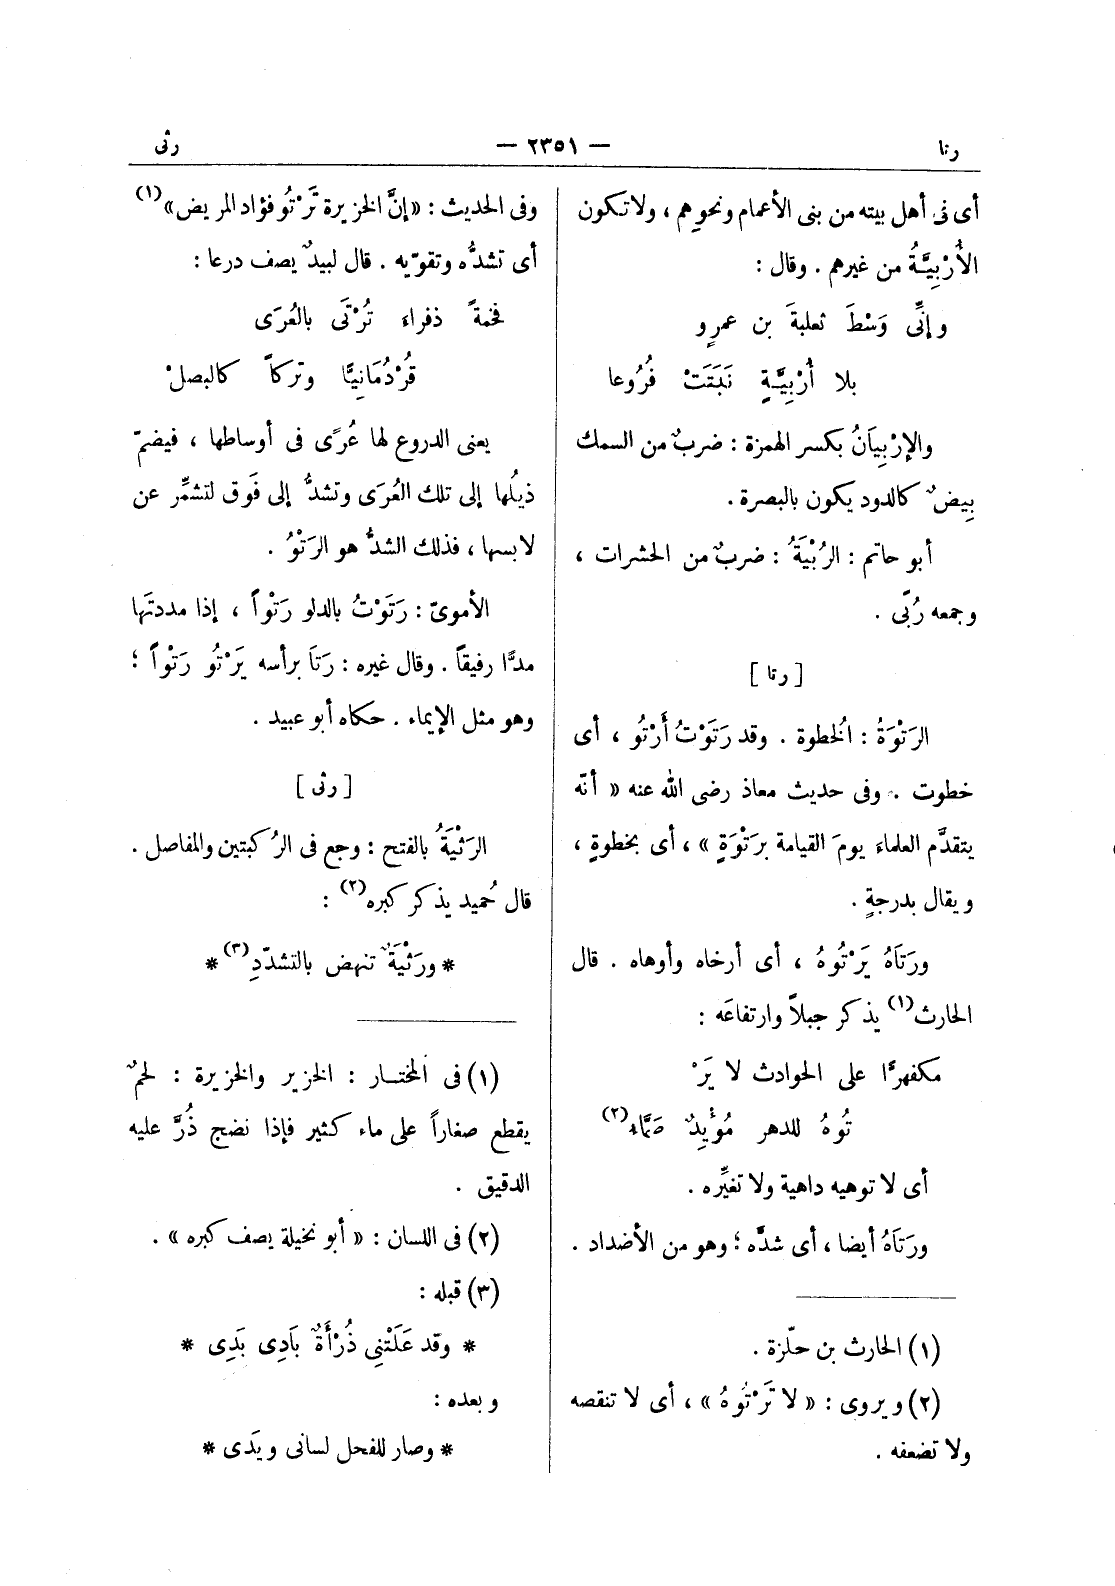 رتا
— ٢٣٥١ —
رثى
أى فى أهل بيته من بنى الأعمام ونحوِهم ، ولا تكون
الأُرْبِيَّةُ من غيرهم . وقال :
وإنِّى وَسْطَ ثعلبةَ بن عمرٍو
بلا أُرْبِيَّةٍ نَبَتَتْ فُرُوعا
والإرْبِيَانُ بكسر الهمزة : ضربٌ من السمك
بِيضٌ كالدود يكون بالبصرة .
أبو حاتم : الرُبْيَةُ : ضربٌ من الحشرات ،
وجمعه رُبًى .
[ رتا ]
الرَتْوَةُ : الخُطوة . وقد رَتَوْتُ أَرْتُو ، أى
خطوت . وفى حديث معاذ رضى الله عنه « أنّه
يتقدَّم العلماءَ يومَ القيامة برَتْوَةٍ » ، أى بخطوةٍ ،
ويقال بدرجةٍ .
ورَتَاهُ يَرْتُوهُ ، أى أرخاه وأوهاه . قال
الحارث(١) يذكر جبلاً وارتفاعَه :
مكفهرًّا على الحوادث لا يَرْ
تُوهُ للدهر مُؤْيِدٌ صَمَّاء(٢)
أى لا توهيه داهية ولا تغيِّره .
ورَتَاهُ أيضا ، أى شدَّه ؛ وهو من الأضداد .
(١) الحارث بن حلّزة .
(٢) ويروى : « لا تَرْتُوهُ » ، أى لا تنقصه
ولا تضعفه .
وفى الحديث : «إنَّ الخزيرة تَرْتُو فؤاد المريض»(١)
أى تشدُّه وتقوّيه . قال لبيدٌ يصف درعا :
فخمةً ذفراءَ تُرْتَى بالعُرَى
قُرْدُمَانِيًّا وتركاً كالبصلْ
يعنى الدروع لها عُرًى فى أوساطها ، فيضمّ
ذيلُها إلى تلك العُرَى وتشدُّ إلى فَوق لتشمِّر عن
لابسها ، فذلك الشدُّ هو الرَتْوُ .
الأموىّ : رَتَوْتُ بالدلو رَتْواً ، إذا مددتَها
مدًّا رفيقاً . وقال غيره : رَتَا برأسه يَرْتُو رَتْواً ؛
وهو مثل الإيماء . حكاه أبو عبيد .
[ رثى ]
الرَثْيَةُ بالفتح : وجع فى الرُكبتين والمفاصل .
قال حُميد يذكر كبره(٢) :
* ورَثْيَةٌ تنهض بالتشدّدِ(٣) *
(١) فى المختار : الخزير والخزيرة : لحمٌ
يقطع صغاراً على ماء كثير فإذا نضج ذُرَّ عليه
الدقيق .
(٢) فى اللسان : « أبو نخيلة يصف كبره » .
(٣) قبله :
* وقد عَلَتْنِى ذُرْأَةٌ بَادِى بَدِى *
وبعده :
* وصار للفحل لسانى ويَدَى *